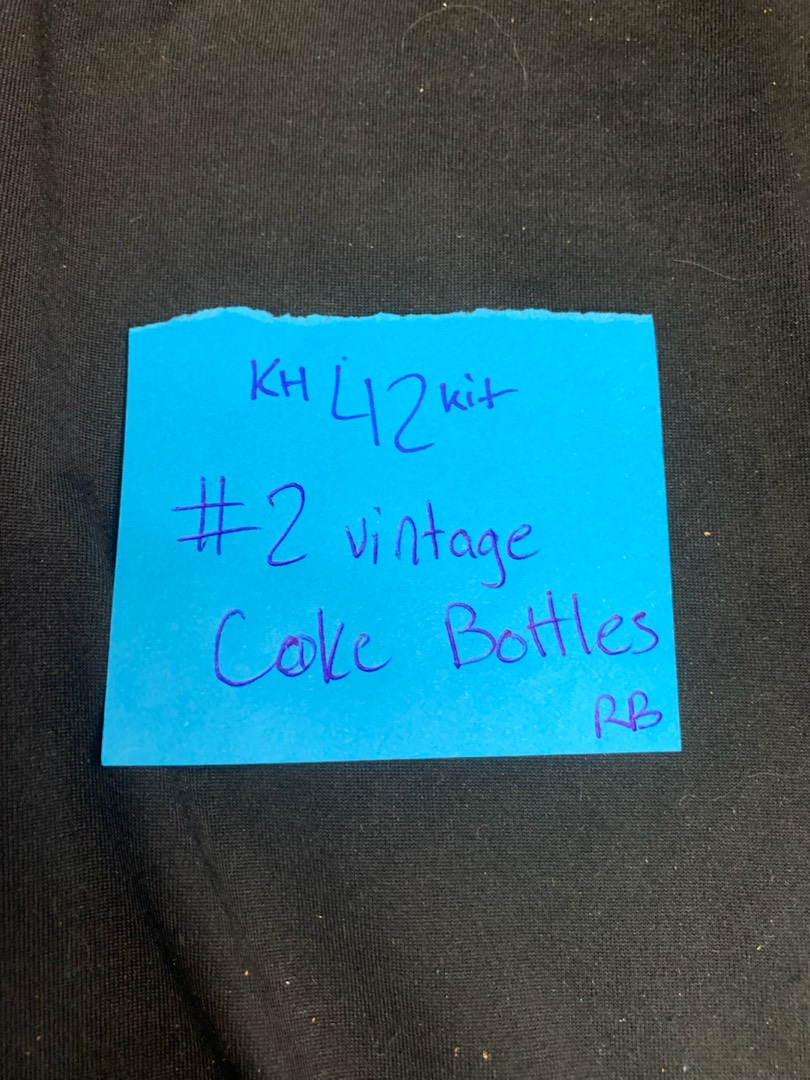 KH 42 kit
#2 vintage
Coke Bottles
RB